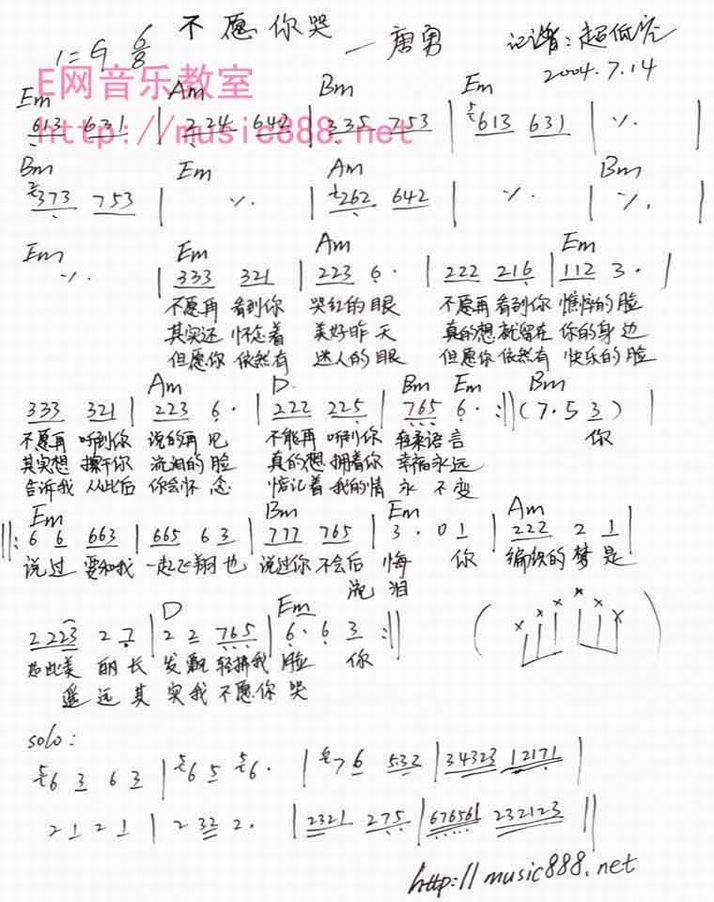 不愿你哭
1=G 6/8 — 唐勇 记谱:
2004.7.14
E网音乐教室
http://music888.net
Em Am Bm Em
613 631 | 224 642 | 335 753 | 613 631 | ٪ |
Bm Em Am Bm
373 753 | ٪ | 262 642 | ٪ | ٪ |
Em Em Am Em
٪ | 333 321 | 223 6· | 222 216 | 112 3· |
不愿再 看到你 哭红的眼 不愿再 看到你 憔悴的脸
其实还 怀念着 美好昨天 真的想 就留在 你的身边
但愿你 依然有 迷人的眼 但愿你 依然有 快乐的脸
Am D Bm Em Bm
333 321 | 223 6· | 222 225 | 765 6· :|| (7·5 3) |
不愿再 听到你 说的再见 不能再 听到你 语言 你
其实想 擦干你 流泪的脸 真的想 拥着你 幸福永远
告诉我 从此后 你会怀念 惦记着 我的情 永不变
Em Bm Em Am
||: 6 6 663 | 665 6 3 | 777 765 | 3· 0 1 | 222 2 1 |
说过 要和我 一起飞翔 也 说过你 不会后 悔 你 编织的 梦 是
流 泪
D Em
2223 2 7 | 2 2 765 | 6· 6 3 :||
如此美 丽 长 发飘 轻拂我 脸 你
遥 远 其 实 我 不 愿 你 哭
( x x x x x x )
solo:
56 3 6 3 | 56 5 56· | 7 6 532 | 34323 12171 |
2 1 2 1 | 2 32 2· | 2321 275 | 676561 232123 ||
http://music888.net